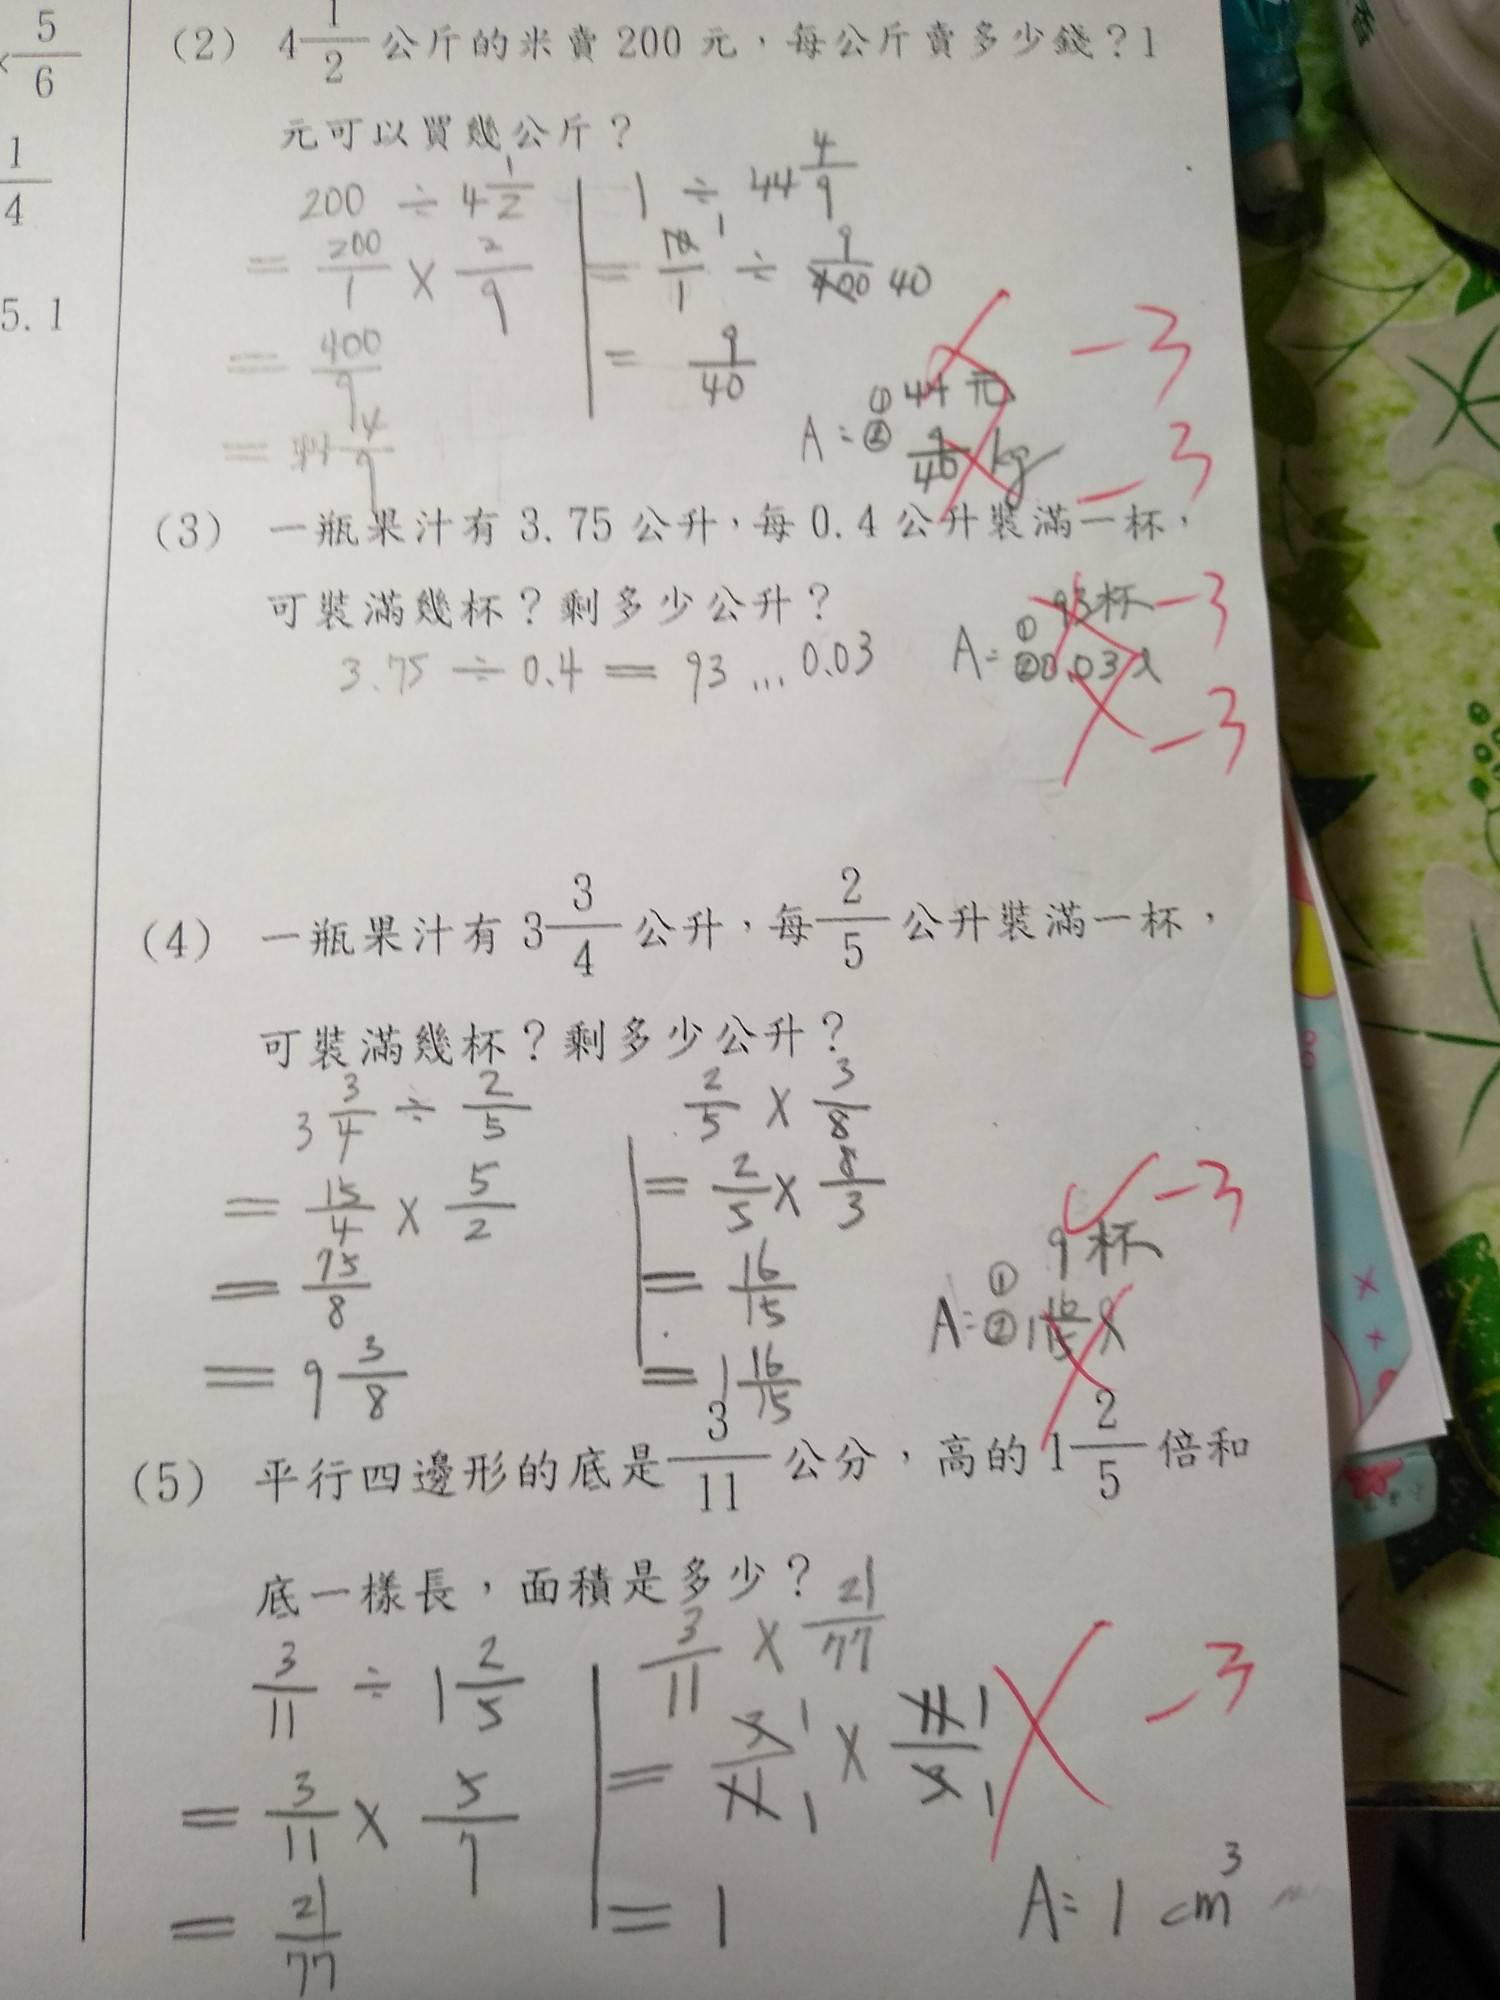 5/6
1/4
5.1
(2) 4 1/2 公斤的米賣 200 元，每公斤賣多少錢？1
元可以買幾公斤？
200 ÷ 4 1/2
= 200/1 × 2/9
= 400/9
= 44 4/9
1 ÷ 44 4/9
= 1/1 ÷ 9/400 40
= 9/40
A: ① 44 元
② 9/40 kg
-3
-3
(3) 一瓶果汁有 3.75 公升，每 0.4 公升裝滿一杯，
可裝滿幾杯？剩多少公升？
3.75 ÷ 0.4 = 93 ... 0.03
A: ① 93杯
② 0.03 ℓ
-3
-3
(4) 一瓶果汁有 3 3/4 公升，每 2/5 公升裝滿一杯，
可裝滿幾杯？剩多少公升？
3 3/4 ÷ 2/5
= 15/4 × 5/2
= 75/8
= 9 3/8
2/5 × 3/8
= 2/5 × 8/3
= 16/15
= 1 16/15
A: ① 9 杯
② 1 16/15 ℓ
-3
(5) 平行四邊形的底是 3/11 公分，高的 1 2/5 倍和
底一樣長，面積是多少？
3/11 ÷ 1 2/5
= 3/11 × 5/7
= 21/77
3/11 × 21/77
= 3/11 1/1 × 11/3 1/1
= 1
A: 1 cm³
-3